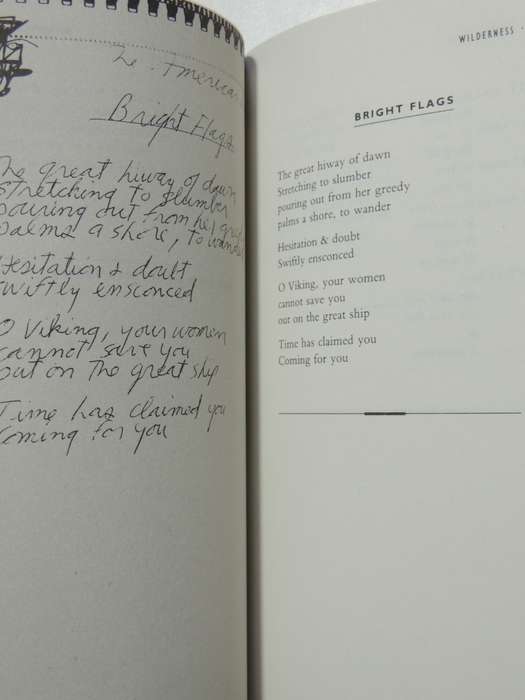 American
Bright Flags
The great hiway of dawn
Stretching to slumber
pouring out from her greedy
palms a shore, to wander
Hesitation & doubt
swiftly ensconced
O Viking, your women
cannot save you
out on the great ship
Time has claimed you
Coming for you
WILDERNESS
BRIGHT FLAGS
The great hiway of dawn
Stretching to slumber
pouring out from her greedy
palms a shore, to wander
Hesitation & doubt
Swiftly ensconced
O Viking, your women
cannot save you
out on the great ship
Time has claimed you
Coming for you